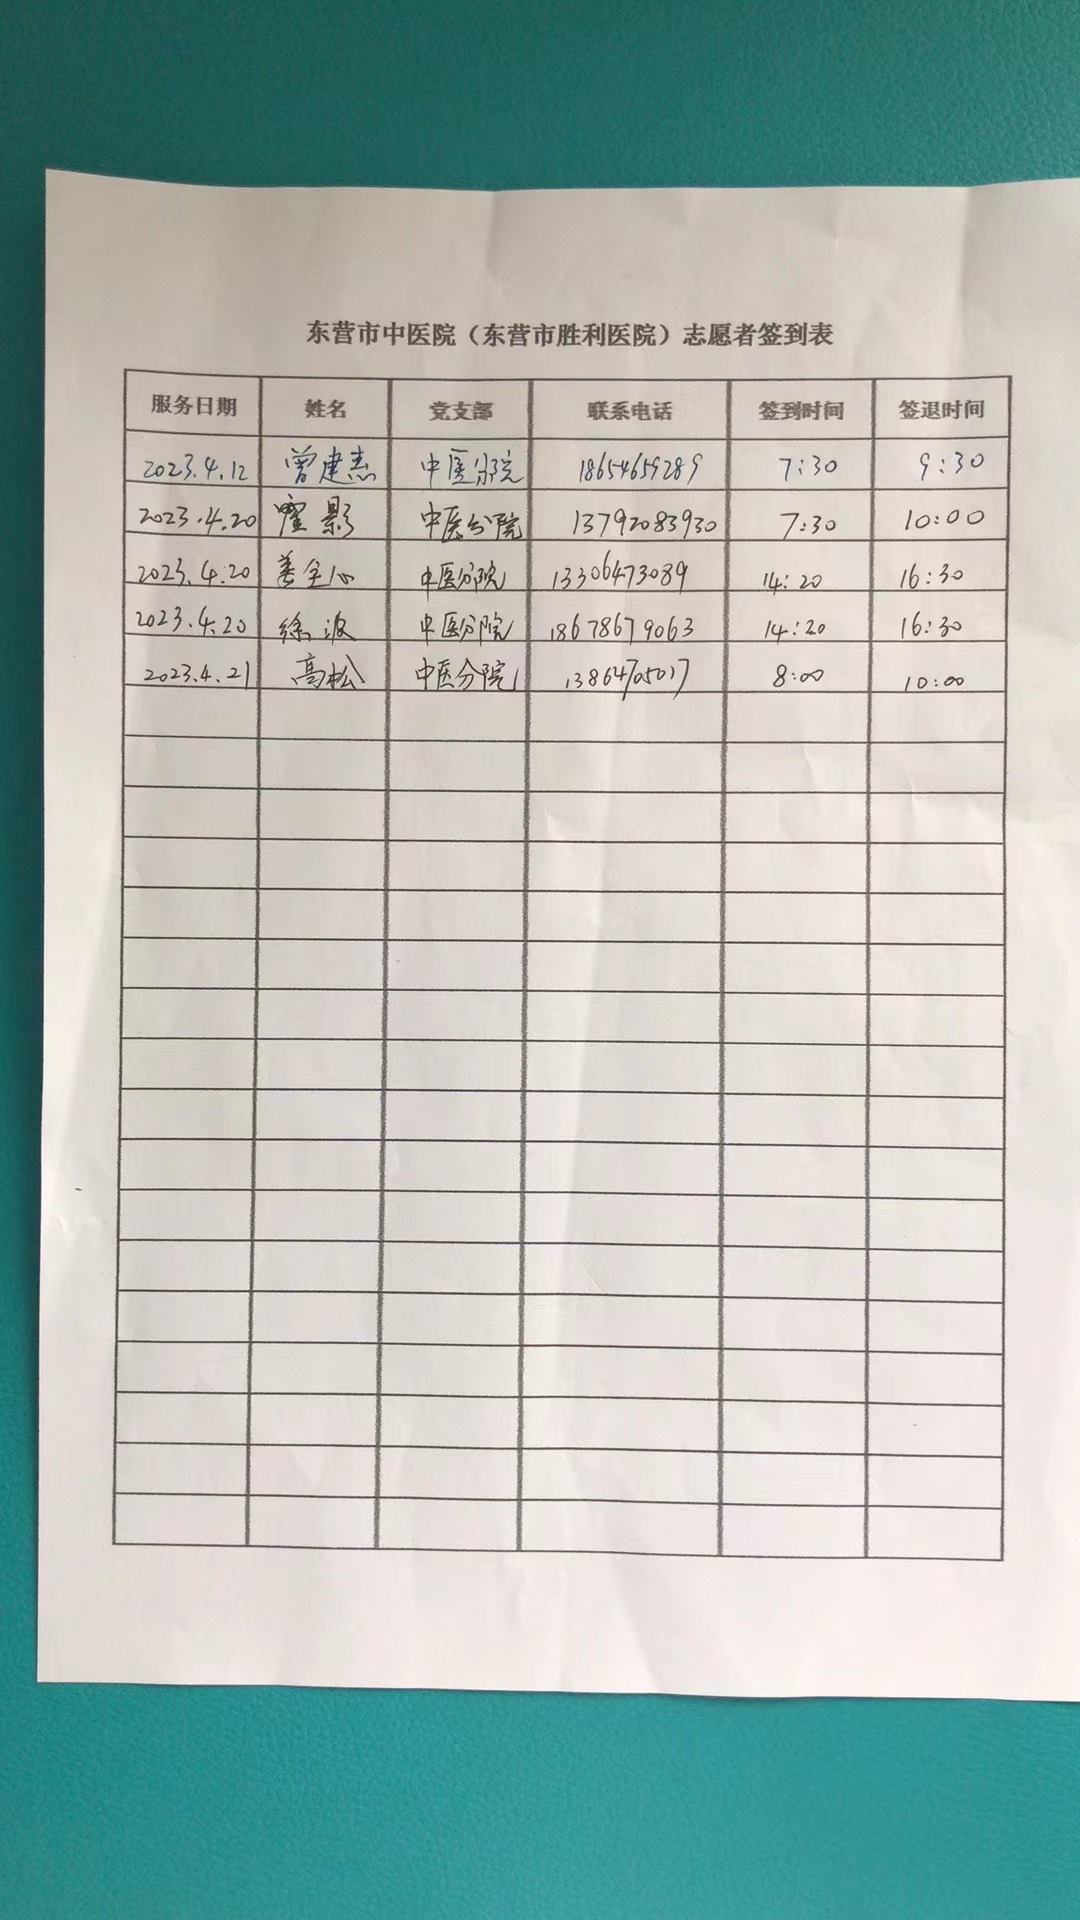 东营市中医院（东营市胜利医院）志愿者签到表
服务日期 姓名 党支部 联系电话 签到时间 签退时间
2023.4.12 曾建杰 中医分院 18654659289 7:30 9:30
2023.4.20 霍影 中医分院 13792083930 7:30 10:00
2023.4.20 中医分院 13306473089 14:20 16:30
2023.4.20 徐波 中医分院 18678679063 14:20 16:30
2023.4.21 高松 中医分院 13864705017 8:00 10:00